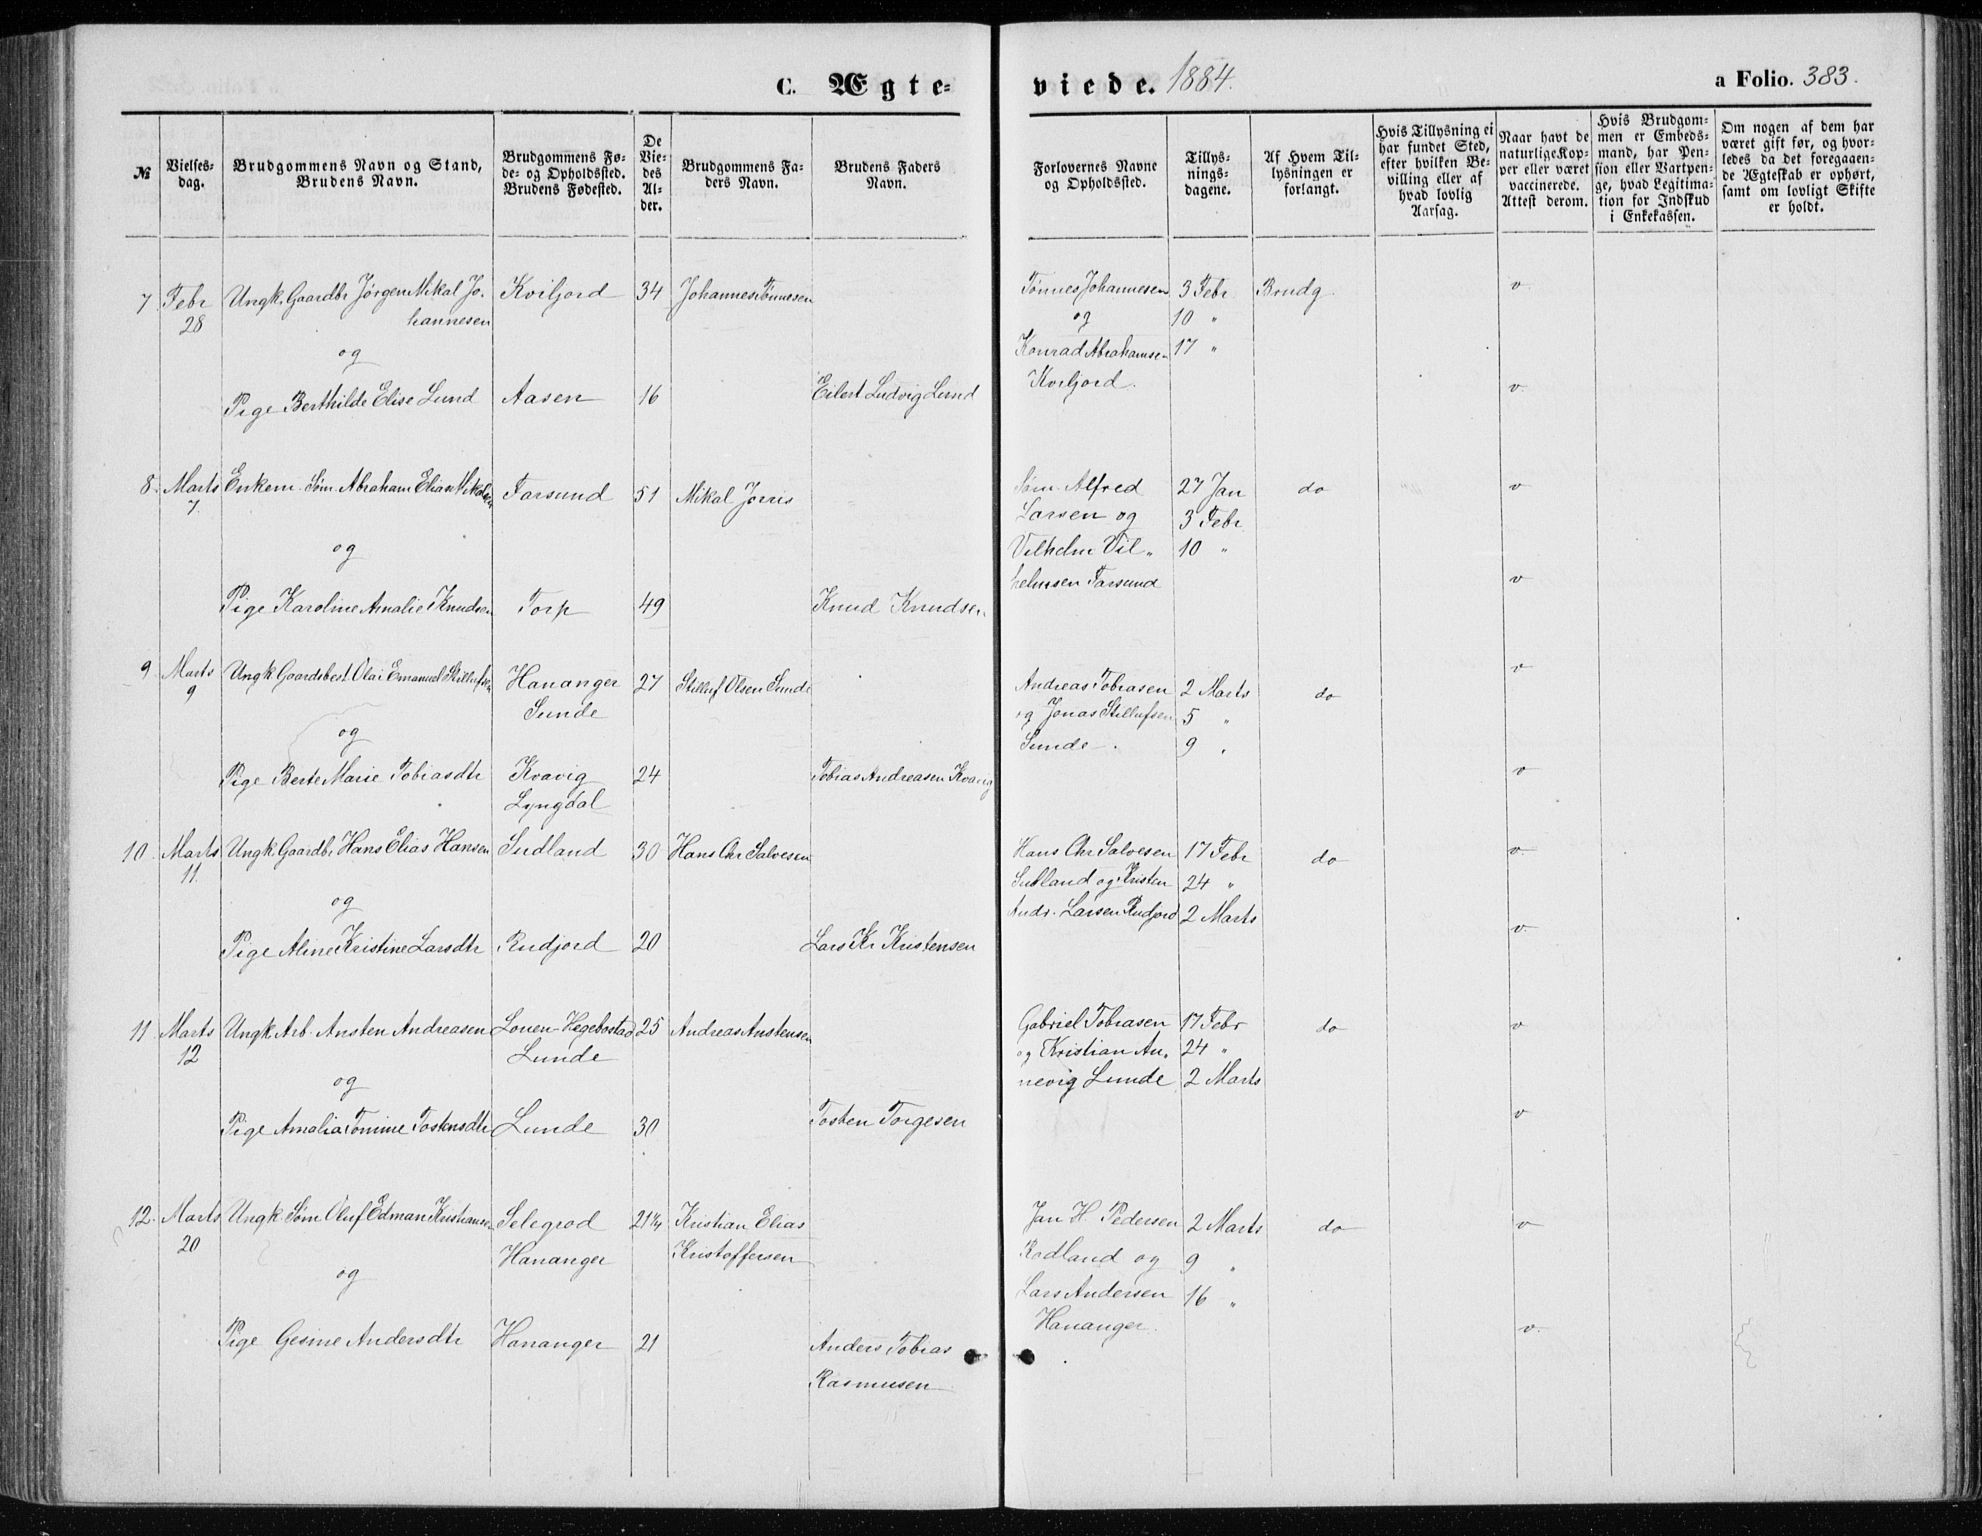 C. Ægte-
viede. 1884.
a Folio. 383.
№
Vielses-
dag.
Brudgommens Navn og Stand,
Brudens Navn.
Brudgommens Fø-
de- og Opholdssted.
Brudens Fødested.
De
Vie-
des
Al-
der.
Brudgommens Fa-
ders Navn.
Brudens Faders
Navn.
Forlovernes Navne
og Opholdssted.
Tillys-
nings-
dagene.
Af Hvem Til-
lysningen er
forlangt.
Hvis Tillysning ei
har fundet Sted,
efter hvilken Be-
villing eller af
hvad lovlig
Aarsag.
Naar havt de
naturlige Kop-
per eller været
vaccinerede.
Attest derom.
Hvis Brudgom-
men er Embeds-
mand, har Pen-
sion eller Vartpen-
ge, hvad Legitima-
tion for Indskud
i Enkekassen.
Om nogen af dem har
været gift før, og hvor-
ledes da det foregaaen-
de Ægteskab er ophørt,
samt om lovligt Skifte
er holdt.
7 Febr Ungk. Gaardbr Jørgen Mikal Jo- Kviljord 34 Johannes Tønnesen Tønnes Johannesen 3 Febr Brudg v
28 hannesen og 10 "
og Konrad Abrahamsen 17 "
Pige Berthilde Elise Lund Aasen 16 Eilert Ludvig Lund Kviljord. v
8. Marts Enkem. Søm. Abraham Elias Mikalsen Farsund 51 Mikal Jorris Søm. Alfred 27 Jan do v
7. Larsen og 3 Febr
og Vilhelm Vil- 10 "
Pige Karoline Amalie Knudsen Torp 49 Knud Knudsen helmsen Farsund v
9 Marts Ungk Gaardsbest. Olai Emanuel Stillufsen Hananger 27 Stilluf Olsen Sunde Andreas Tobiasen 2 Marts do v
9 Sunde og Jonas Stillufsen 5 "
og Sunde. 9 "
Pige Berte Marie Tobiasdtr Kvavig 24 Tobias Andreasen Kvavig v
Lyngdal
10. Marts Ungk. Gaardbr Hans Elias Hansen Sudland 30 Hans Chr Salvesen Hans Chr Salvesen 17 Febr do v.
11. Sudland og Kristen 24 "
og Andr. Larsen Rudjord 2 Marts
Pige Aline Kristine Larsdtr Rudjord 20 Lars Kr Kristensen v
11. Marts Ungk Arb. Ansten Andreasen Hegebostad 25 Andreas Anstensen Gabriel Tobiasen 17 Febr do v
12 Lunde og Kristian An- 24 "
og nevig Lunde 2 Marts
Pige Amalia Tomine Tostensdtr Lunde 30 Tosten Torgesen v
12. Marts Ungk. Søm Oluf Edman Kristiansen Selegrod 21 1/4 Kristian Elias Jan H. Pedersen 2 Marts do v
20 Hananger Kristoffersen Rodland og 9 "
og Lars Andersen 16 "
Pige Gesine Andersdtr Hananger 21 Anders Tobias Hananger. v.
Rasmussen